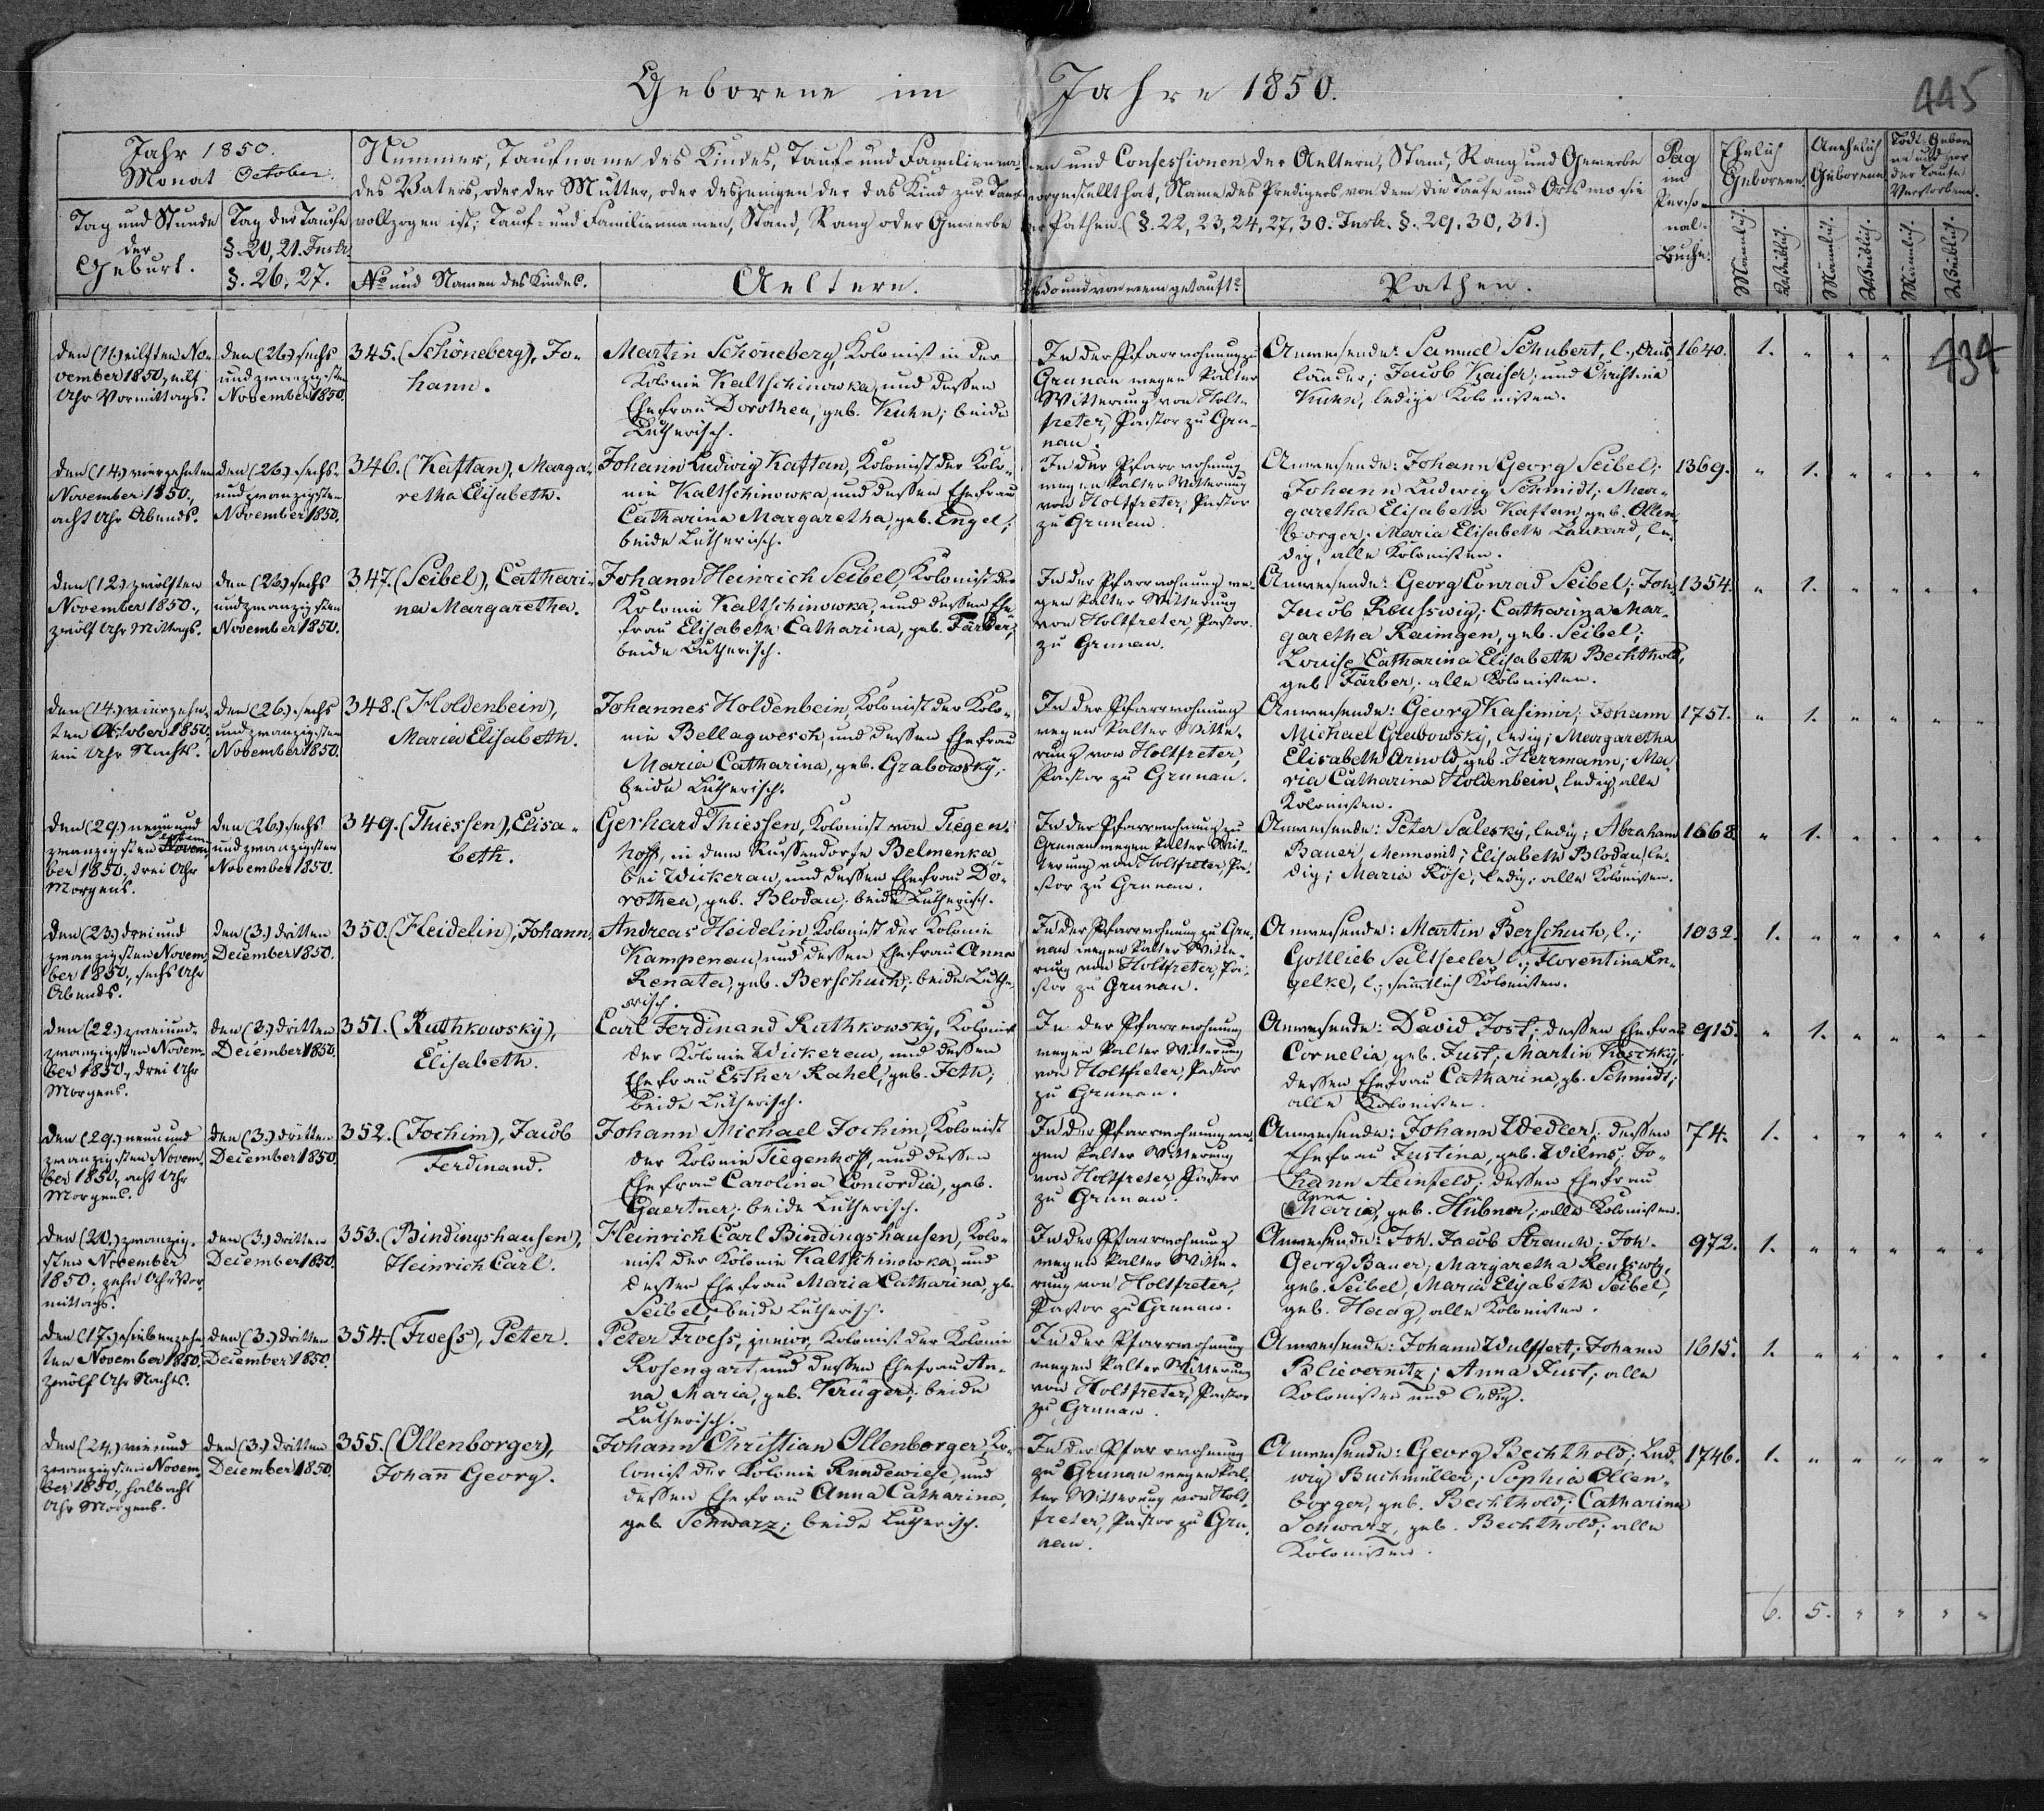 Geborene im Jahre 1850.
445
Jahr 1850.
Monat October.
Tag und Stunde
der
Geburt.
Tag der Taufe
§. 20, 21. Instr.
§. 26, 27.
Nummer, Taufname des Kindes, Tauf- und Familienna-
men und Confessionen der Aeltern, Stand, Rang und Gewerbe
des Vaters, oder der Mutter, oder desjenigen der das Kind zur Taufe
vorgestellt hat, Name des Predigers von dem die Taufe und Orts wo sie
vollzogen ist; Tauf- und Familiennamen, Stand, Rang oder Gewerbe
der Pathen. (§. 22, 23, 24, 27, 30. Instr. §. 29, 30, 31.)
No und Namen des Kindes.
Aeltern.
Wo und von wem getauft?
Pathen.
Pag
im
Perso-
nal-
Buche.
Ehelich
Geborene.
Unehelich
Geborene
Todt-Gebor-
ne und vor
der Taufe
Verstorbene.
Männlich.
Weiblich.
Männlich.
Weiblich.
Männlich.
Weiblich.
434
den (11.) eilften No-
vember 1850, eilf
Uhr Vormittags.
den (26.) sechs
und zwanzigsten
November 1850.
345. (Schöneberg), Jo-
hann.
Martin Schöneberg, Kolonist in der
Kolonie Kaltschinowka, und dessen
Ehefrau Dorothea, geb. Kuhn; beide
Lutherisch.
In der Pfarrwohnung zu
Grunau wegen kalter
Witterung von Holt-
freter, Pastor zu Gru-
nau.
Anwesende: Samuel Schubert, l., Aus-
länder; Jacob Kaiser; und Christine
Kuhn, ledige Kolonisten.
1640. 1. " " "
den (14.) vierzehnten
November 1850.,
acht Uhr Abends.
den (26.) sechs-
und zwanzigsten
November 1850.
346. (Kaftan), Marga-
retha Elisabeth.
Johann Ludwig Kaftan, Kolonist der Kolo-
nie Kaltschinowka, und dessen Ehefrau
Catharina Margaretha, geb. Engel;
beide Lutherisch.
In der Pfarrwohnung
wegen kalter Witterung
von Holtfreter, Pastor
zu Grunau.
Anwesende: Johann Georg Seibel;
Johann Ludwig Schmidt; Mar-
garetha Elisabeth Kaftan, geb. Ollen-
borger; Maria Elisabeth Lankard, le-
dig, alle Kolonisten.
1369. " 1. " " " "
den (12.) zwölften
November 1850.,
zwölf Uhr Mittags.
den (26.) sechs
und zwanzigsten
November 1850.
347. (Seibel), Cathari-
na Margaretha.
Johann Heinrich Seibel, Kolonist der
Kolonie Kaltschinowka, und dessen Ehe-
frau Elisabeth Catharina, geb. Färber;
beide Lutherisch.
In der Pfarrwohnung we-
gen kalter Witterung
von Holtfreter, Pastor
zu Grunau.
Anwesende: Georg Conrad Seibel; Joh.
Jacob Reusswig; Catharina Mar-
garetha Raimgen, geb. Seibel;
Louise Catharina Elisabeth Bechthold,
geb. Färber; alle Kolonisten.
1354. " 1. " " " "
den (14.) vierzehn-
ten October 1850,
ein Uhr Nachts.
den (26.) sechs
und zwanzigsten
November 1850.
348. (Holdenbein),
Maria Elisabeth.
Johannes Holdenbein, Kolonist der Kolo-
nie Bellagwesch, und dessen Ehefrau
Maria Catharina, geb. Grabowsky;
beide Lutherisch.
In der Pfarrwohnung
wegen kalter Witte-
rung von Holtfreter,
Pastor zu Grunau.
Anwesende: Georg Kasimir; Johann
Michael Grabowsky, ledig; Margaretha
Elisabeth Arnold, geb. Herrmann; Ma-
ria Catharina Holdenbein, ledig, alle
Kolonisten.
1751. " 1. " " " "
den (29.) neun und
zwanzigsten Septem-
ber 1850, drei Uhr
Morgens.
den (26.) sechs
und zwanzigsten
November 1850.
349. (Thiessen), Elisa-
beth.
Gerhard Thiessen, Kolonist von Tiegen-
hoff, in dem Russendorfe Belmenka
bei Wickerau, und dessen Ehefrau Do-
rothea, geb. Blodau; beide Lutherisch.
In der Pfarrwohnung zu
Grunau wegen kalter Wit-
terung von Holtfreter, Pa-
stor zu Grunau.
Anwesende: Peter Salesky, ledig; Abraham
Bauer, Mennonit; Elisabeth Blodau, le-
dig; Maria Röse, ledig; alle Kolonisten.
1668. " 1. " " " "
den (23.) drei und
zwanzigsten Novem-
ber 1850., sechs Uhr
Abends.
den (3.) dritten
December 1850.
350. (Heidelin), Johann.
Andreas Heidelin, Kolonist der Kolonie
Kampenau, und dessen Ehefrau Anna
Renata, geb. Berschuch; beide Luthe-
risch.
In der Pfarrwohnung zu Gru-
nau wegen kalter Witte-
rung von Holtfreter, Pa-
stor zu Grunau.
Anwesende: Martin Berschuch, l.;
Gottlieb Saltseeler l.; Florentina En-
gelke, l.; sämtlich Kolonisten.
1032. 1. " " " " "
den (22.) zweiund-
zwanzigsten Novem-
ber 1850., drei Uhr
Morgens.
den (3.) dritten
December 1850.
351. (Ruthkowsky),
Elisabeth.
Carl Ferdinand Ruthkowsky, Kolonist
der Kolonie Wickerau, und dessen
Ehefrau Esther Rahel, geb. Feth;
beide Lutherisch.
In der Pfarrwohnung
wegen kalter Witterung
von Holtfreter, Pastor
zu Grunau.
Anwesende: David Jost; dessen Ehefrau
Cornelia, geb. Just; Martin Koschky;
dessen Ehefrau Catharina, gb. Schmidt;
alle Kolonisten.
915. " 1. " " " "
den (29.) neun und
zwanzigsten Novem-
ber 1850., acht Uhr
Morgens.
den (3.) dritten
December 1850.
352. (Jochim), Jacob
Ferdinand.
Johann Michael Jochim, Kolonist
der Kolonie Tiegenhoff, und dessen
Ehefrau Carolina Concordia, geb.
Gaertner; beide Lutherisch.
In der Pfarrwohnung we-
gen kalter Witterung
von Holtfreter, Pastor
zu Grunau.
Anwesende: Johann Wedler; dessen
Ehefrau Justina, geb. Wilms; Jo-
hann Steinfeld; dessen Ehefrau
Anna
Maria, geb. Hübner; alle Kolonisten.
74. 1. " " " " "
den (20.) zwanzig-
sten November
1850., zehn Uhr Vor-
mittags.
den (3.) dritten
December 1850.
353. (Bindingshausen),
Heinrich Carl.
Heinrich Carl Bindingshausen, Kolo-
nist der Kolonie Kaltschinowka, und
dessen Ehefrau Maria Catharina, gb.
Seibel; beide Lutherisch.
In der Pfarrwohnung
wegen kalter Witte-
rung von Holtfreter,
Pastor zu Grunau.
Anwesende: Joh. Jacob Strauch; Joh.
Georg Bauer; Margaretha Reusswig,
geb. Seibel, Maria Elisabeth Seibel,
geb. Haag, alle Kolonisten.
972. 1. " " " " "
den (17.) siebenzehn-
ten November 1850.
zwölf Uhr Nachts.
den (3.) dritten
December 1850.
354. (Froess), Peter.
Peter Froess, junior, Kolonist der Kolonie
Rosengart, und dessen Ehefrau An-
na Maria, geb. Krüger; beide
Lutherisch.
In der Pfarrwohnung
wegen kalter Witterung
von Holtfreter, Pastor
zu Grunau.
Anwesende: Johann Wulffert; Johann
Blievernitz; Anna Just; alle
Kolonisten und ledig.
1615. 1. " " " " "
den (24.) vier und
zwanzigsten Novem-
ber 1850., halb acht
Uhr Morgens.
den (3.) dritten
December 1850.
355. (Ollenborger),
Johann Georg.
Johann Christian Ollenborger, Ko-
lonist der Kolonie Rundewiese, und
dessen Ehefrau Anna Catharina,
geb. Schwarz; beide Lutherisch.
In der Pfarrwohnung
zu Grunau wegen kal-
ter Witterung von Holt-
freter, Pastor zu Gru-
nau.
Anwesende: Georg Bechthold; Lud-
wig Buchmüller; Sophia Ollen-
borger, geb. Bechthold; Catharina
Schwarz, geb. Bechthold; alle
Kolonisten.
1746. 1. " " " " "
6. 5. " " " "